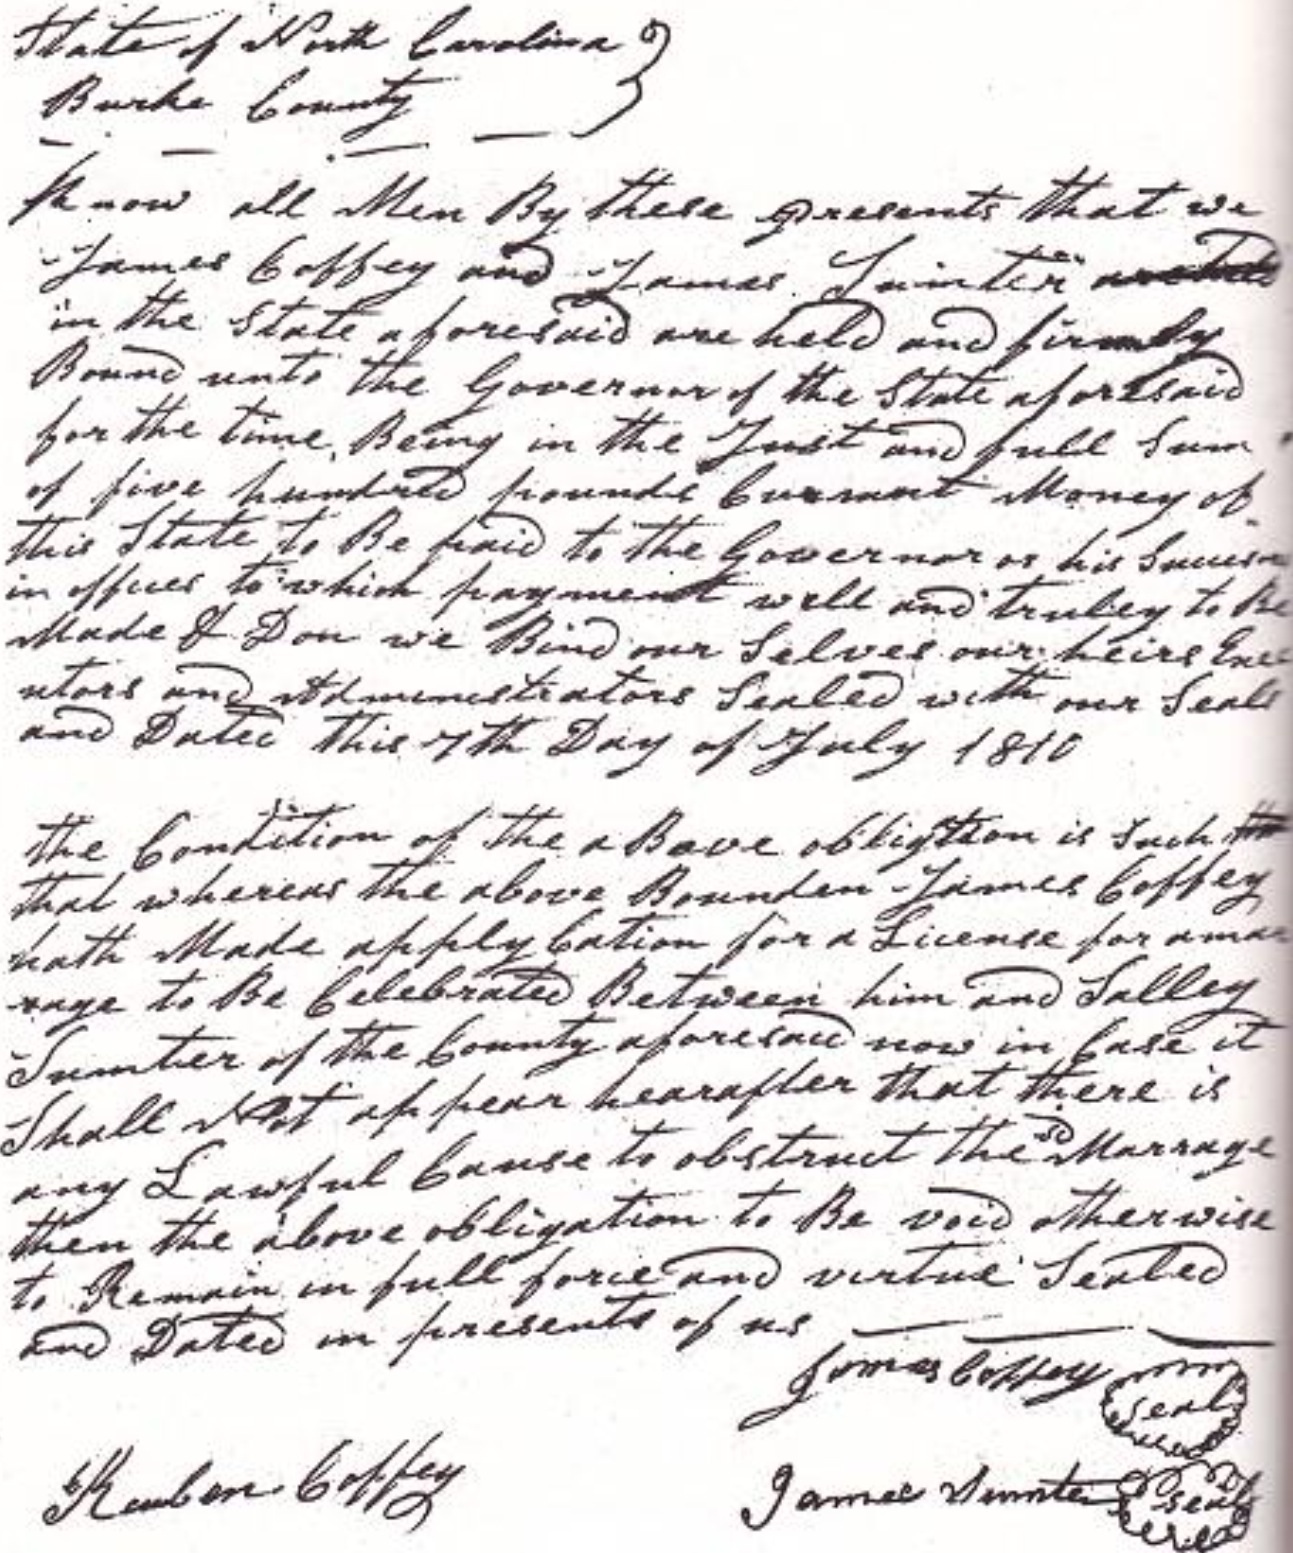 State of North Carolina
Burke County
Know all Men By these presents that we
James Coffey and James Sumter
in the State aforesaid are held and firmly
Bound unto the Governor of the State aforesaid
for the time Being in the Just and full Sum
of five hundred pounds Currant Money of
this State to Be paid to the Governor or his
in offices to which payment well and truley to Be
Made & Don we Bind our Selves our heirs Exec
utors and Administrators Sealed with our Seals
and Dated this 7th Day of July 1810
the Condition of the aBove obligtion is Such
that whereas the above Bounden James Coffey
hath Made apply Cation for a License for a mar
rage to Be Celebrated Between him and Salley
Sumter of the County aforesaid now in Case it
Shall Not appear hearafter that there is
any Lawful Cause to obstruct the sd Marrage
then the above obligation to Be void otherwise
to Remain in full force and virtue Sealed
and Dated in presents of us
James Coffey seal
Reuben Coffey
James Sumter seal